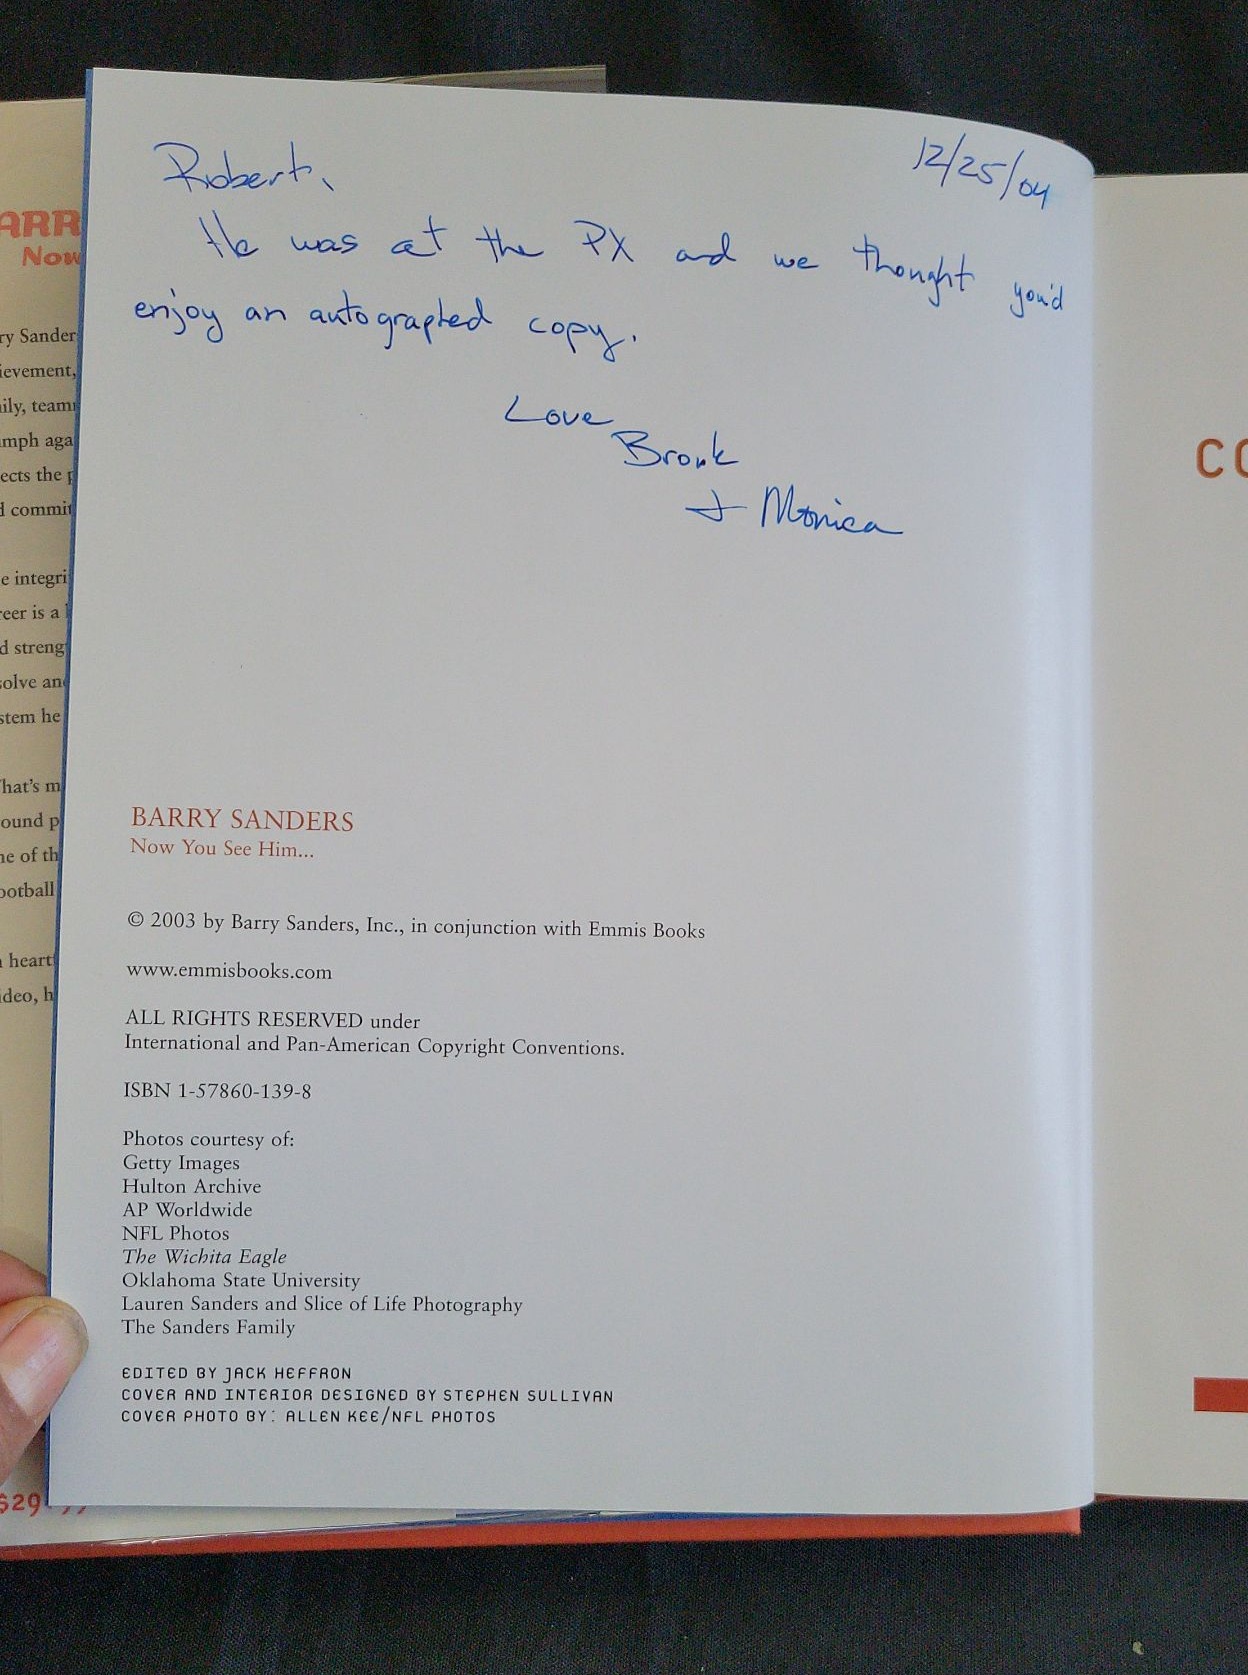 12/25/04
Robert,
He was at the PX and we thought you'd
enjoy an autographed copy.
Love
Bronk
+ Monica
BARRY SANDERS
Now You See Him...
© 2003 by Barry Sanders, Inc., in conjunction with Emmis Books
www.emmisbooks.com
ALL RIGHTS RESERVED under
International and Pan-American Copyright Conventions.
ISBN 1-57860-139-8
Photos courtesy of:
Getty Images
Hulton Archive
AP Worldwide
NFL Photos
The Wichita Eagle
Oklahoma State University
Lauren Sanders and Slice of Life Photography
The Sanders Family
EDITED BY JACK HEFFRON
COVER AND INTERIOR DESIGNED BY STEPHEN SULLIVAN
COVER PHOTO BY: ALLEN KEE/NFL PHOTOS
ARR
Now
ry Sander
ievement,
ily, team
mph aga
ects the p
d commit
e integri
reer is a
d streng
solve an
stem he
hat's m
ound p
ne of th
ootball
heart
ideo, h
$29
CO